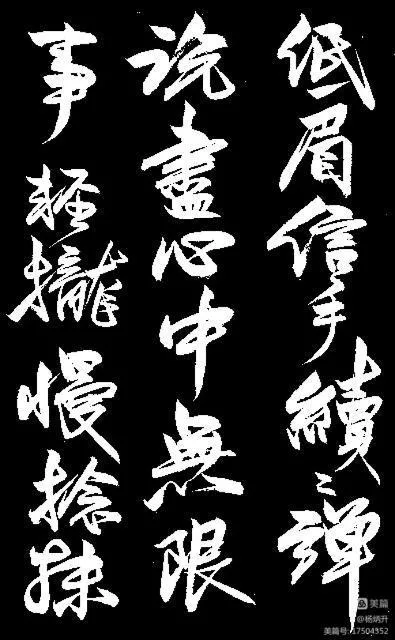 低眉信手續〻彈
說盡心中無限
事輕攏慢捻抹
美篇
@杨炳升
美篇号:17504352